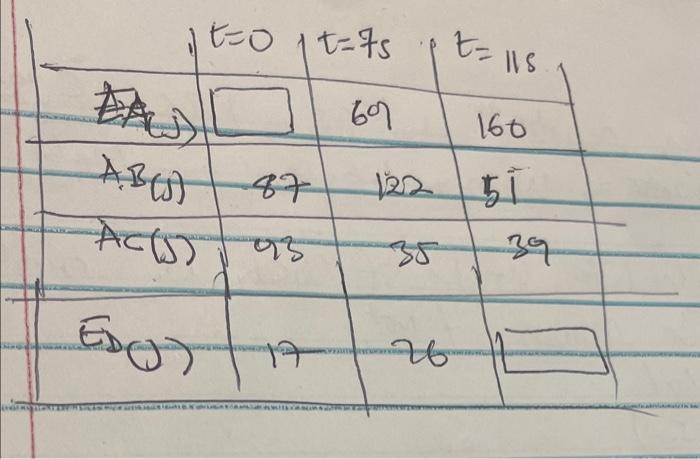 t=0 t=7s t=11s
EA(J) 69 160
A.B(J) 87 122 51
AC(J) 93 35 39
ED(J) 17 26